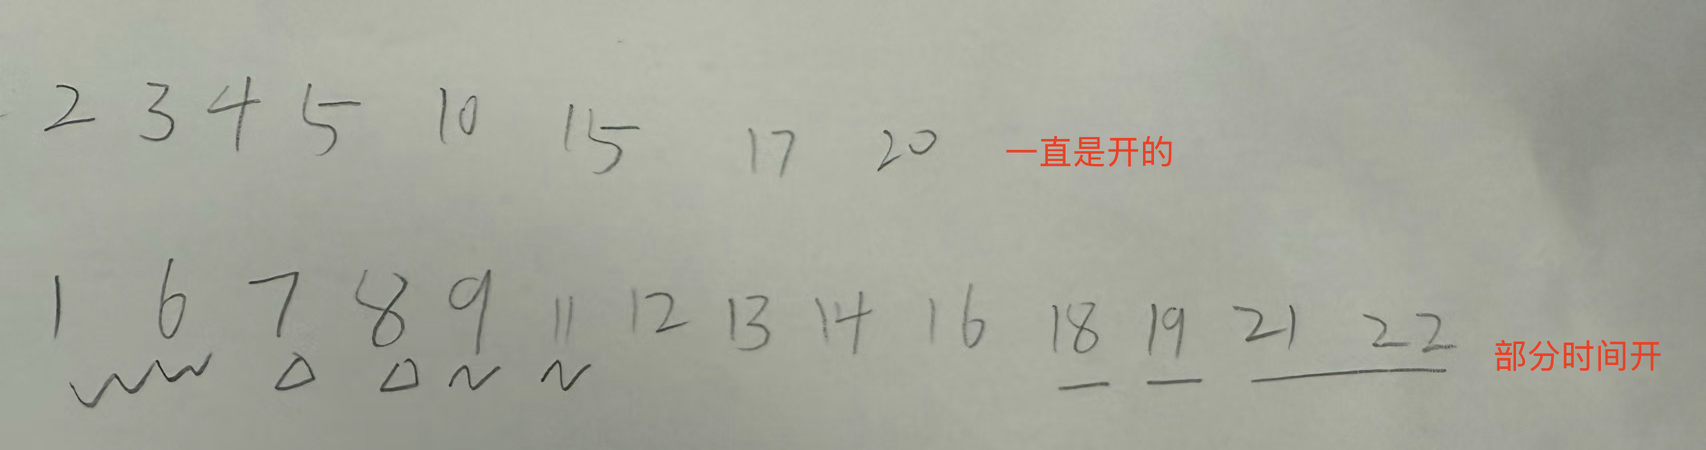 2 3 4 5 10 15 17 20 一直是开的
1 6 7 8 9 11 12 13 14 16 18 19 21 22 部分时间开